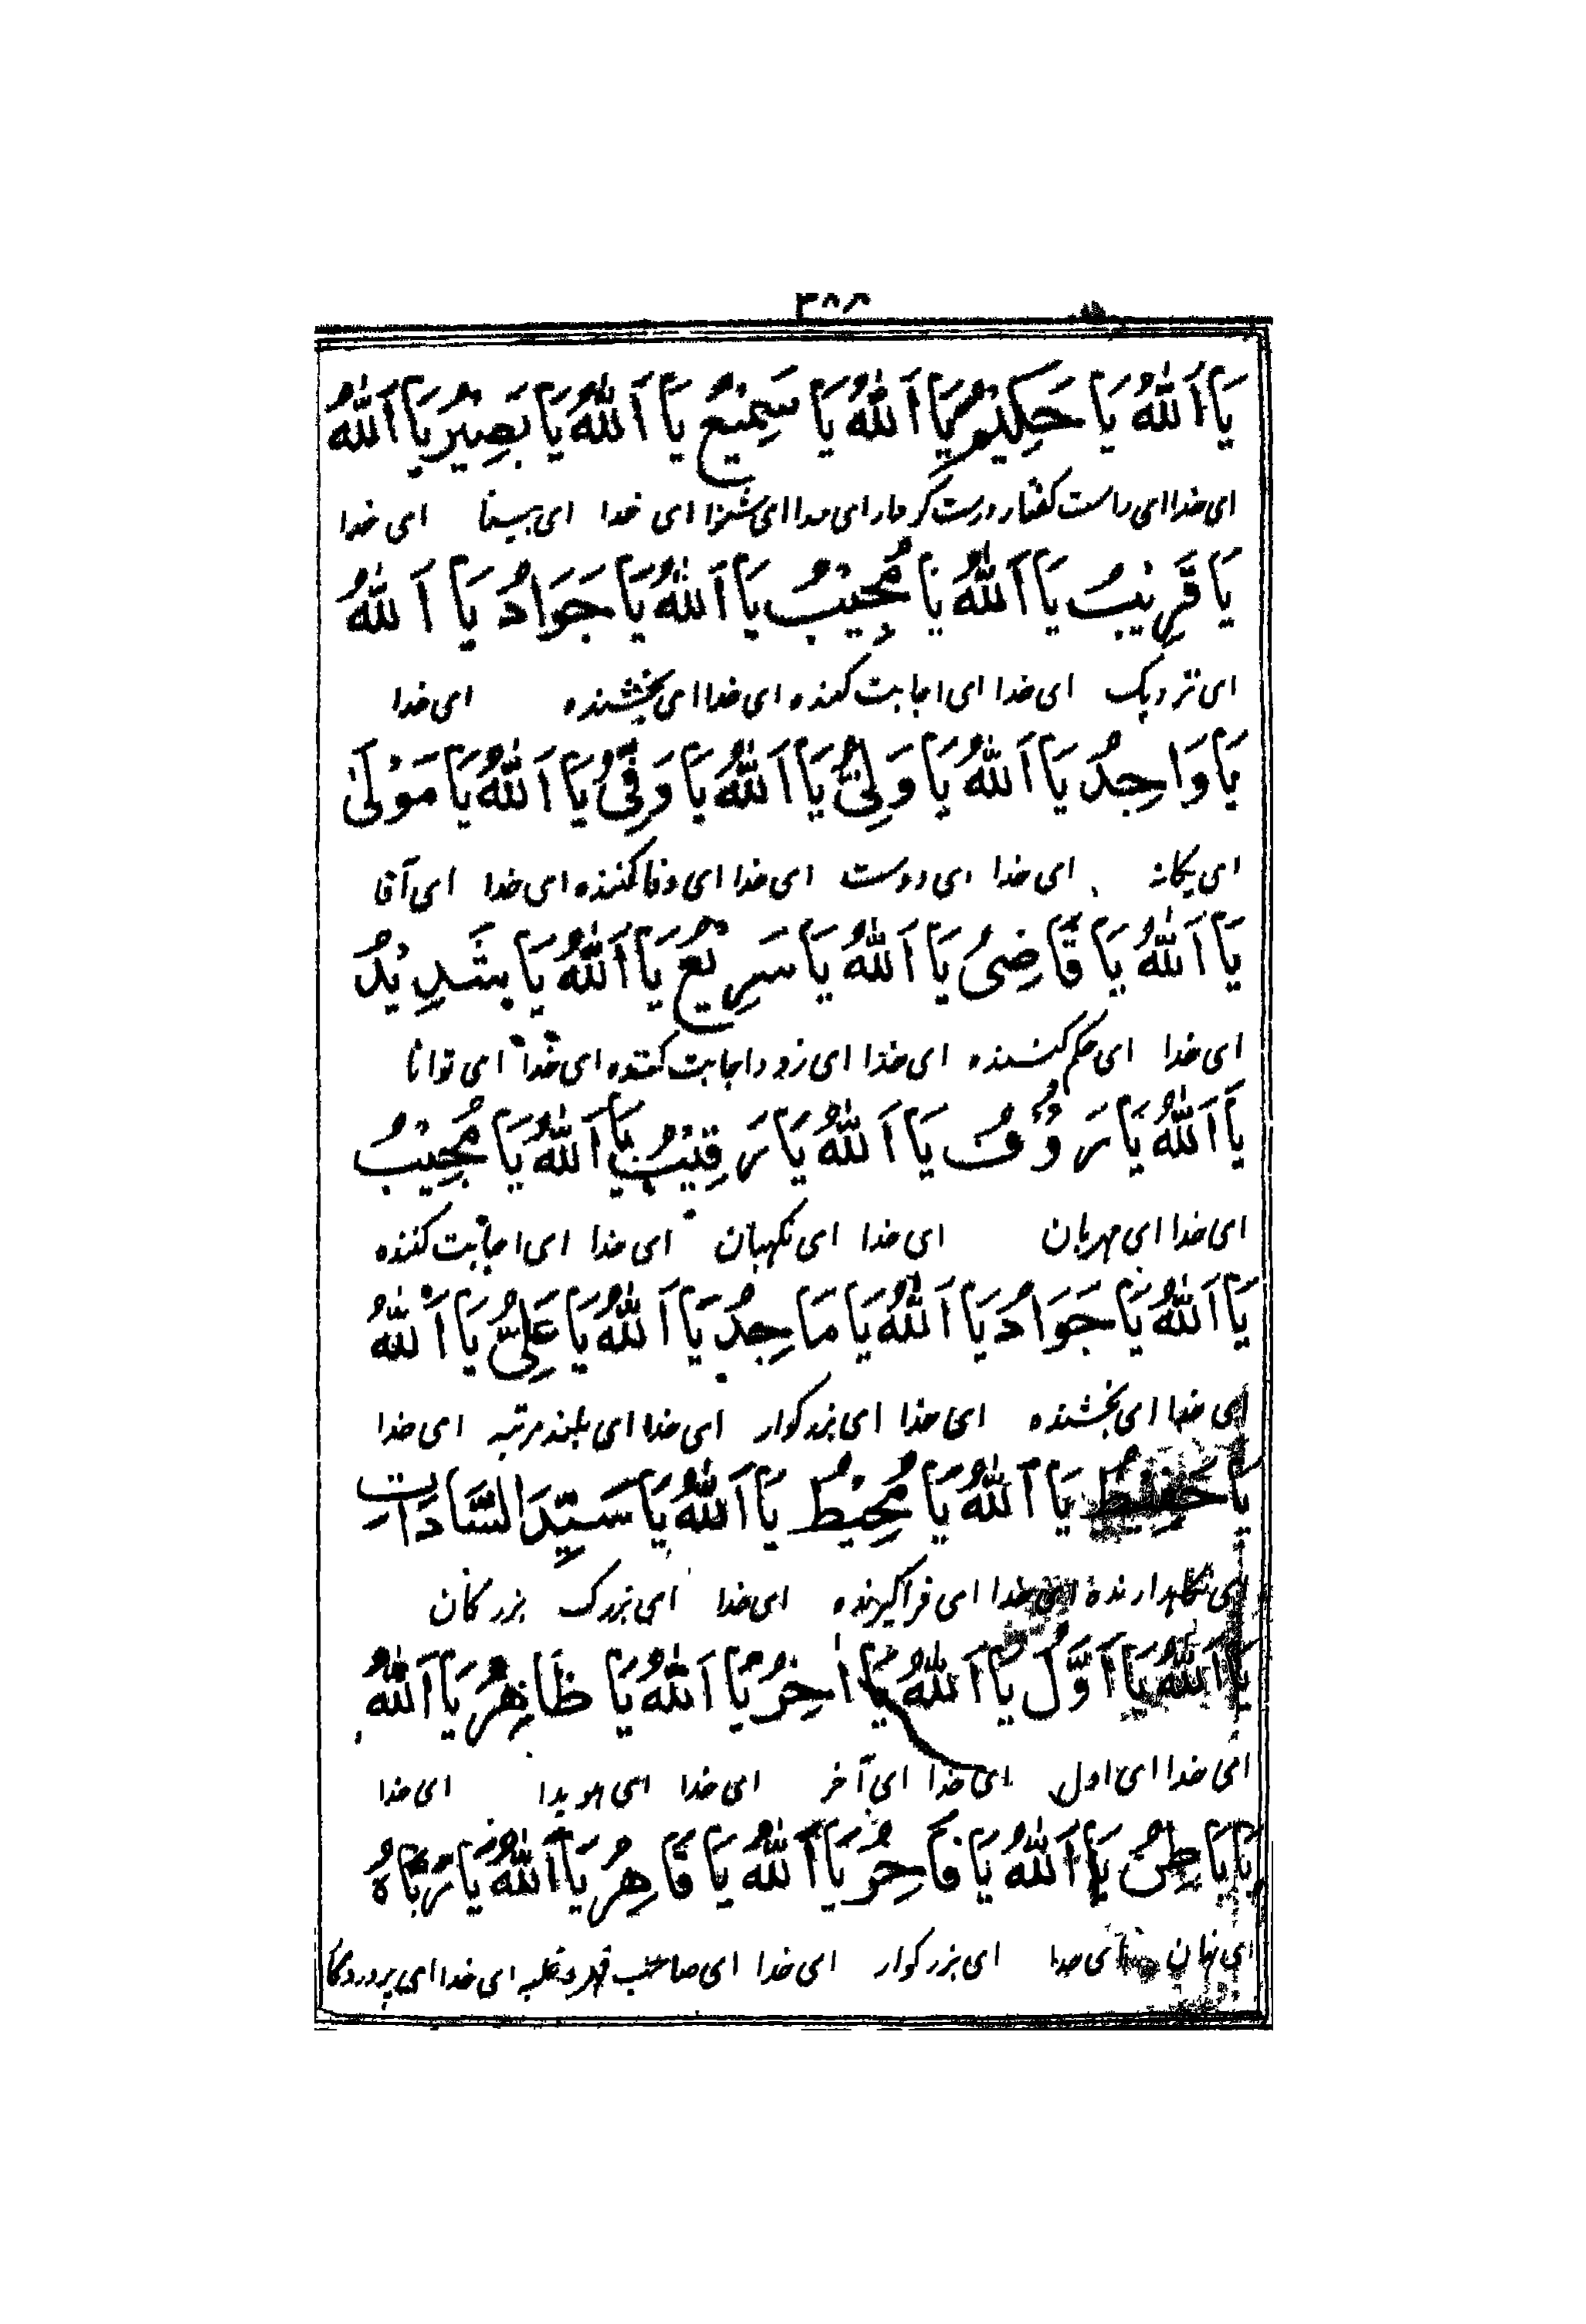 ۳۸۸
يَا اَللهُ يَا حَكِيْمُ يَا اَللهُ يَا سَمِيْعُ يَا اَللهُ يَا بَصِيْرُ يَا اَللهُ
ای خدا ای راست گفتار درست کردار ای خدا ای شنوا ای خدا ای بینا ای خدا
يَا قَرِيْبُ يَا اَللهُ يَا مُجِيْبُ يَا اَللهُ يَا جَوَادُ يَا اَللهُ
ای نزدیک ای خدا ای اجابت کننده ای خدا ای بخشنده ای خدا
يَا وَاحِدُ يَا اَللهُ يَا وَلِيُّ يَا اَللهُ يَا وَفِيُّ يَا اَللهُ يَا مَوْلٰى
ای یگانه ای خدا ای دوست ای خدا ای وفا کننده ای خدا ای آقا
يَا اَللهُ يَا قَاضِيُ يَا اَللهُ يَا سَرِيْعُ يَا اَللهُ يَا شَدِيْدُ
ای خدا ای حکم کننده ای خدا ای زود اجابت کننده ای خدا ای توانا
يَا اَللهُ يَا رَؤُفُ يَا اَللهُ يَا رَقِيْبُ يَا اَللهُ يَا مُجِيْبُ
ای خدا ای مهربان ای خدا ای نگهبان ای خدا ای اجابت کننده
يَا اَللهُ يَا جَوَادُ يَا اَللهُ يَا مَاجِدُ يَا اَللهُ يَا عَلِيُّ يَا اَللهُ
ای خدا ای بخشنده ای خدا ای بزرگوار ای خدا ای بلند مرتبه ای خدا
يَا حَفِيْظُ يَا اَللهُ يَا مُحِيْطُ يَا اَللهُ يَا سَيِّدَ السَّادَاتِ
ای نگاهدارنده ای خدا ای فراگیرنده ای خدا ای بزرگ بزرگان
يَا اَللهُ يَا اَوَّلُ يَا اَللهُ يَا اٰخِرُ يَا اَللهُ يَا ظَاهِرُ يَا اَللهُ
ای خدا ای اول ای خدا ای آخر ای خدا ای هویدا ای خدا
يَا بَاطِنُ يَا اَللهُ يَا فَاخِرُ يَا اَللهُ يَا قَاهِرُ يَا اَللهُ يَا رَبَّاهُ
ای نهان ای خدا ای بزرگوار ای خدا ای صاحب قهر و غلبه ای خدا ای پروردگا